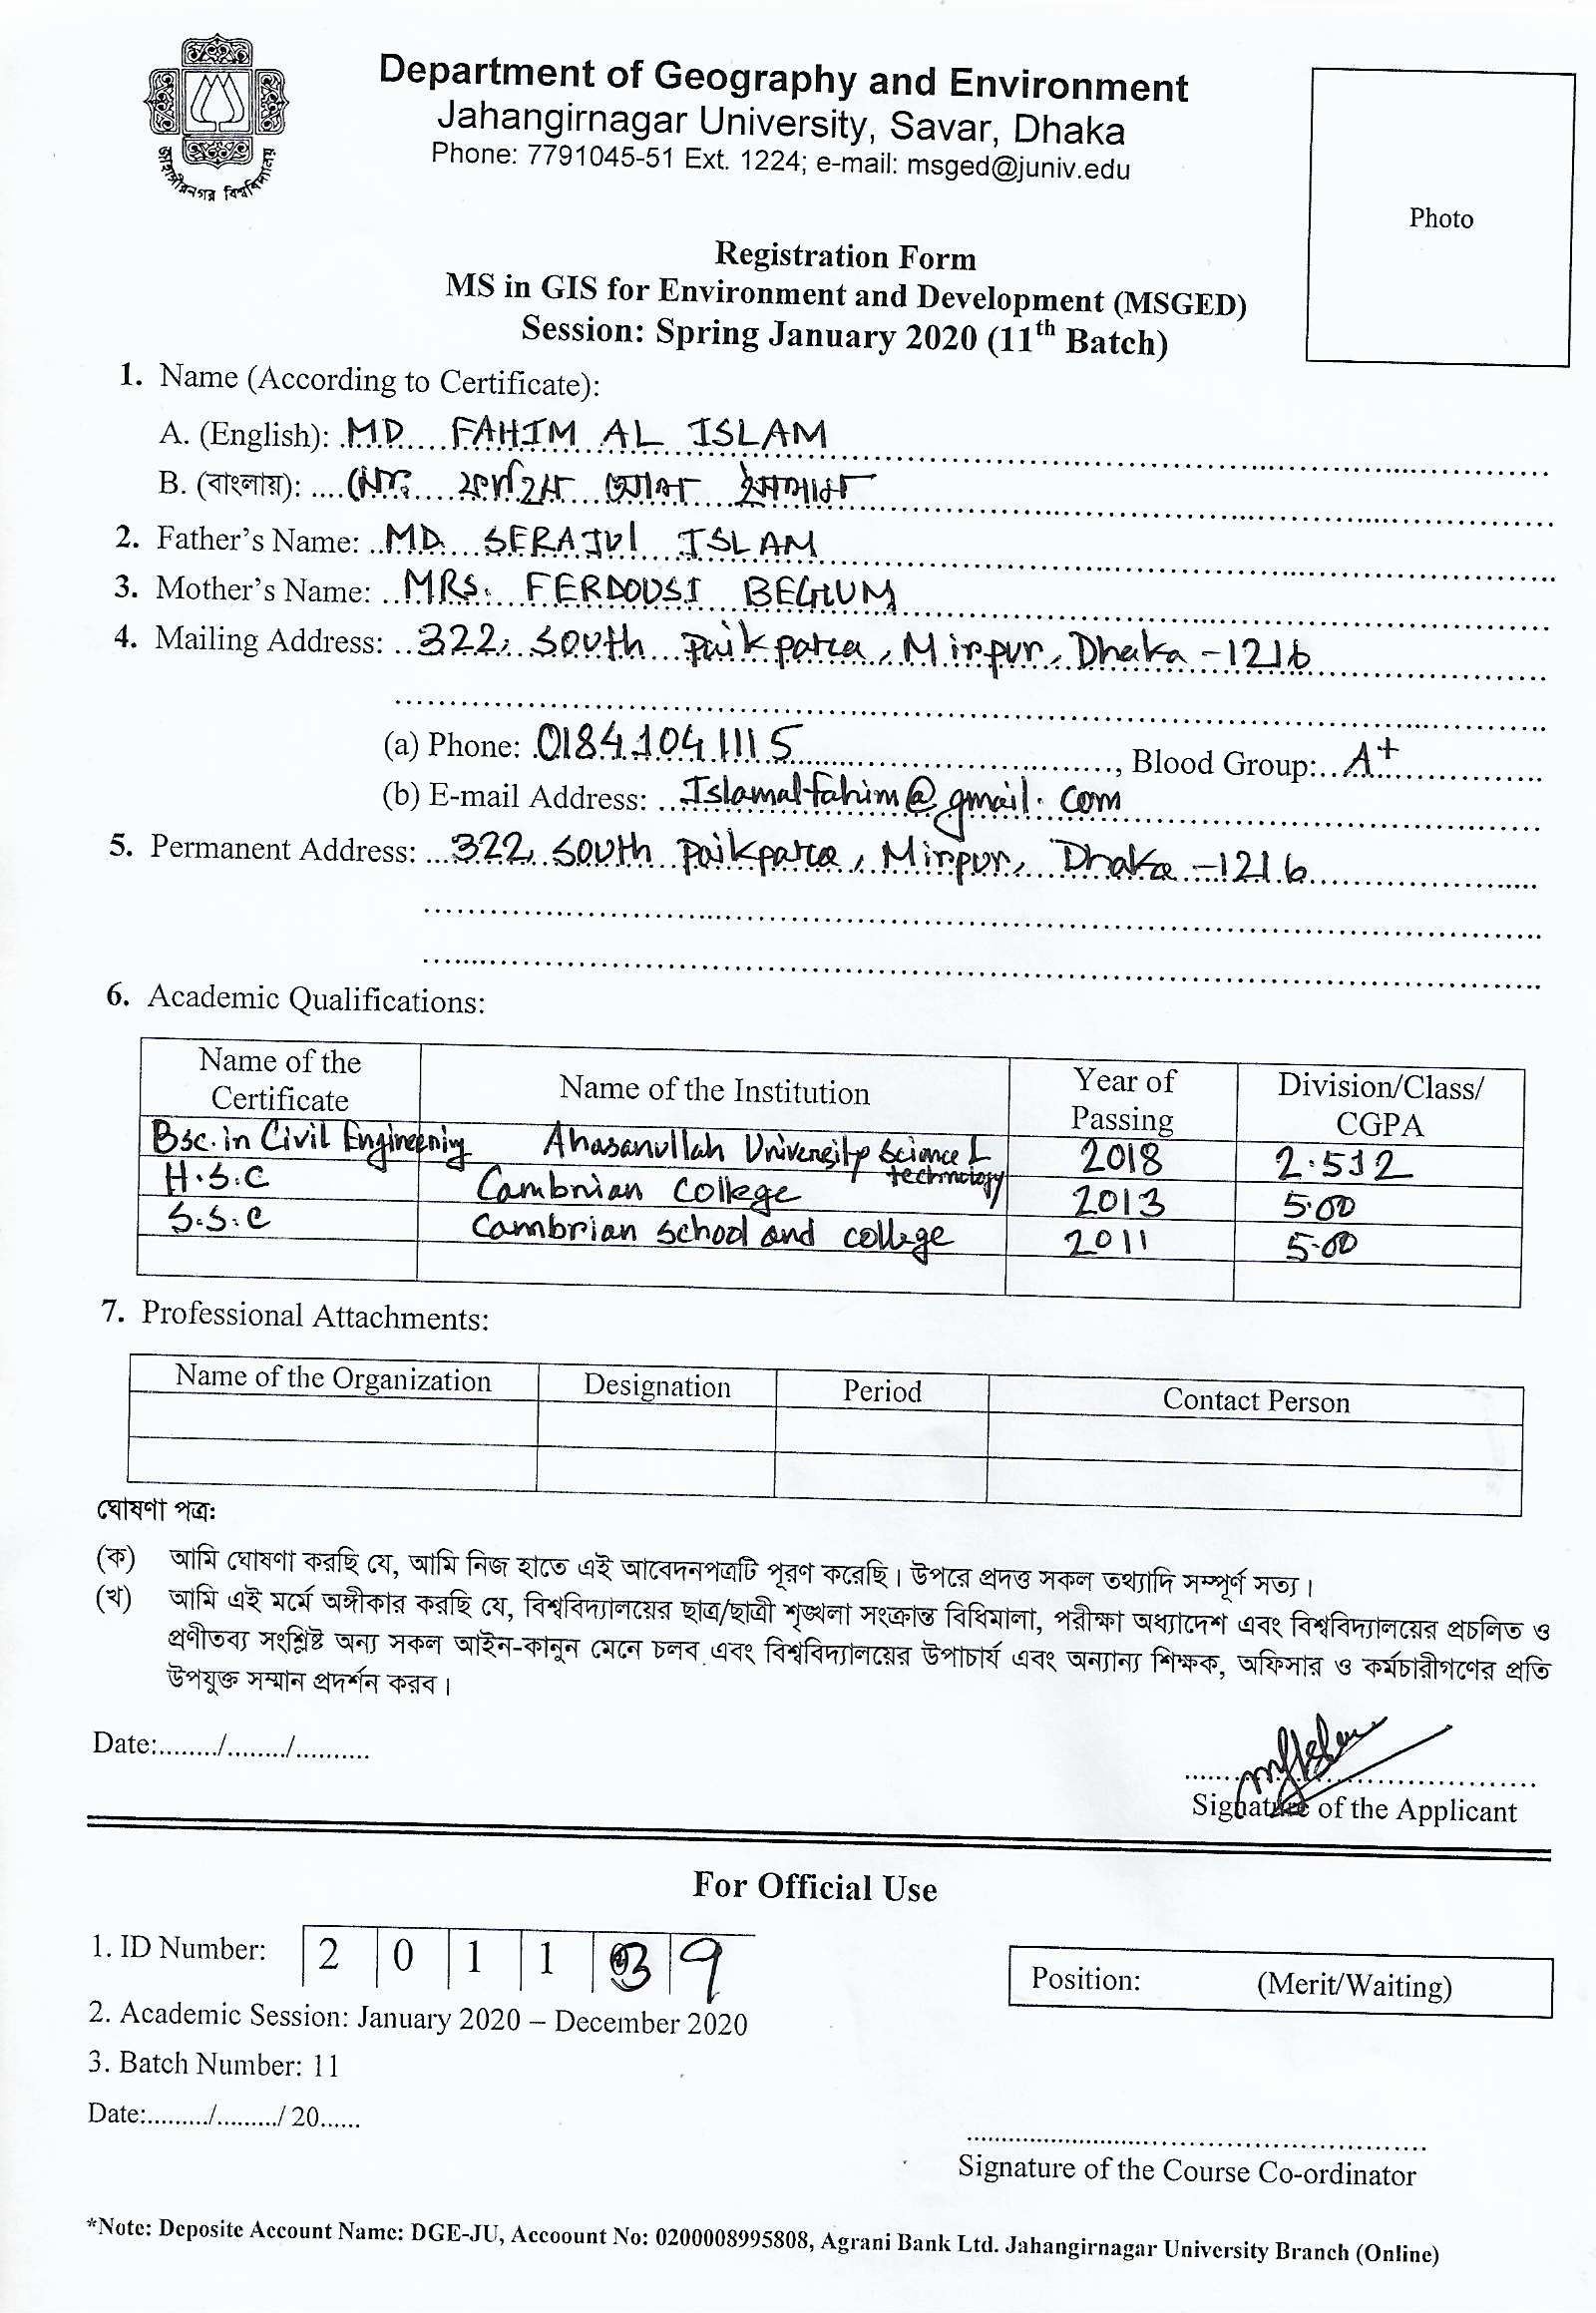 জাহাঙ্গীরনগর বিশ্ববিদ্যালয়
Department of Geography and Environment
Jahangirnagar University, Savar, Dhaka
Phone: 7791045-51 Ext. 1224; e-mail: msged@juniv.edu
Photo
Registration Form
MS in GIS for Environment and Development (MSGED)
Session: Spring January 2020 (11th Batch)
1. Name (According to Certificate):
A. (English): MD FAHIM AL ISLAM
B. (বাংলায়): মোঃ ফাহিম আল ইসলাম
2. Father's Name: MD SERAJUl ISLAM
3. Mother's Name: MRS. FERDOUSI BEGUM
4. Mailing Address: 322, South Paikpara, Mirpur, Dhaka -1216
(a) Phone: 01841041115, Blood Group: A+
(b) E-mail Address: Islamalfahim@gmail.com
5. Permanent Address: 322, South Paikpara, Mirpur, Dhaka -1216
6. Academic Qualifications:
Name of the Certificate Name of the Institution Year of Passing Division/Class/CGPA
Bsc. in Civil Engineering Ahasanullah University Science & technology 2018 2.512
H.S.C Cambrian College 2013 5.00
S.S.C Cambrian School and college 2011 5.00
7. Professional Attachments:
Name of the Organization Designation Period Contact Person
ঘোষণা পত্র:
(ক) আমি ঘোষণা করছি যে, আমি নিজ হাতে এই আবেদনপত্রটি পূরণ করেছি। উপরে প্রদত্ত সকল তথ্যাদি সম্পূর্ণ সত্য।
(খ) আমি এই মর্মে অঙ্গীকার করছি যে, বিশ্ববিদ্যালয়ের ছাত্র/ছাত্রী শৃঙ্খলা সংক্রান্ত বিধিমালা, পরীক্ষা অধ্যাদেশ এবং বিশ্ববিদ্যালয়ের প্রচলিত ও
প্রণীতব্য সংশ্লিষ্ট অন্য সকল আইন-কানুন মেনে চলব এবং বিশ্ববিদ্যালয়ের উপাচার্য এবং অন্যান্য শিক্ষক, অফিসার ও কর্মচারীগণের প্রতি
উপযুক্ত সম্মান প্রদর্শন করব।
Date:......../......../..........
Signature of the Applicant
For Official Use
1. ID Number: 2 0 1 1 3 9
Position: (Merit/Waiting)
2. Academic Session: January 2020 – December 2020
3. Batch Number: 11
Date:........./........./ 20......
Signature of the Course Co-ordinator
*Note: Deposite Account Name: DGE-JU, Accoount No: 0200008995808, Agrani Bank Ltd. Jahangirnagar University Branch (Online)